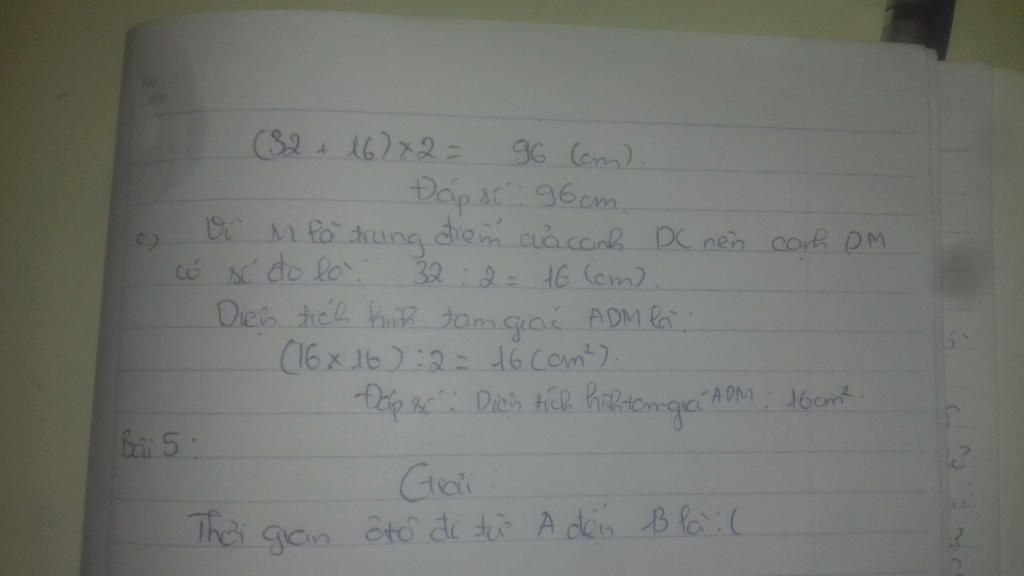 No.
Date
(32 + 16) × 2 = 96 (cm).
Đáp số : 96 cm
c) Vì M là trung điểm của cạnh DC nên cạnh DM
có số đo là : 32 : 2 = 16 (cm).
Diện tích hình tam giác ADM là :
(16 × 16) : 2 = 16 (cm²).
Đáp số : Diện tích hình tam giác ADM : 16cm².
Bài 5 :
Giải :
Thời gian ôtô đi từ A đến B là : (